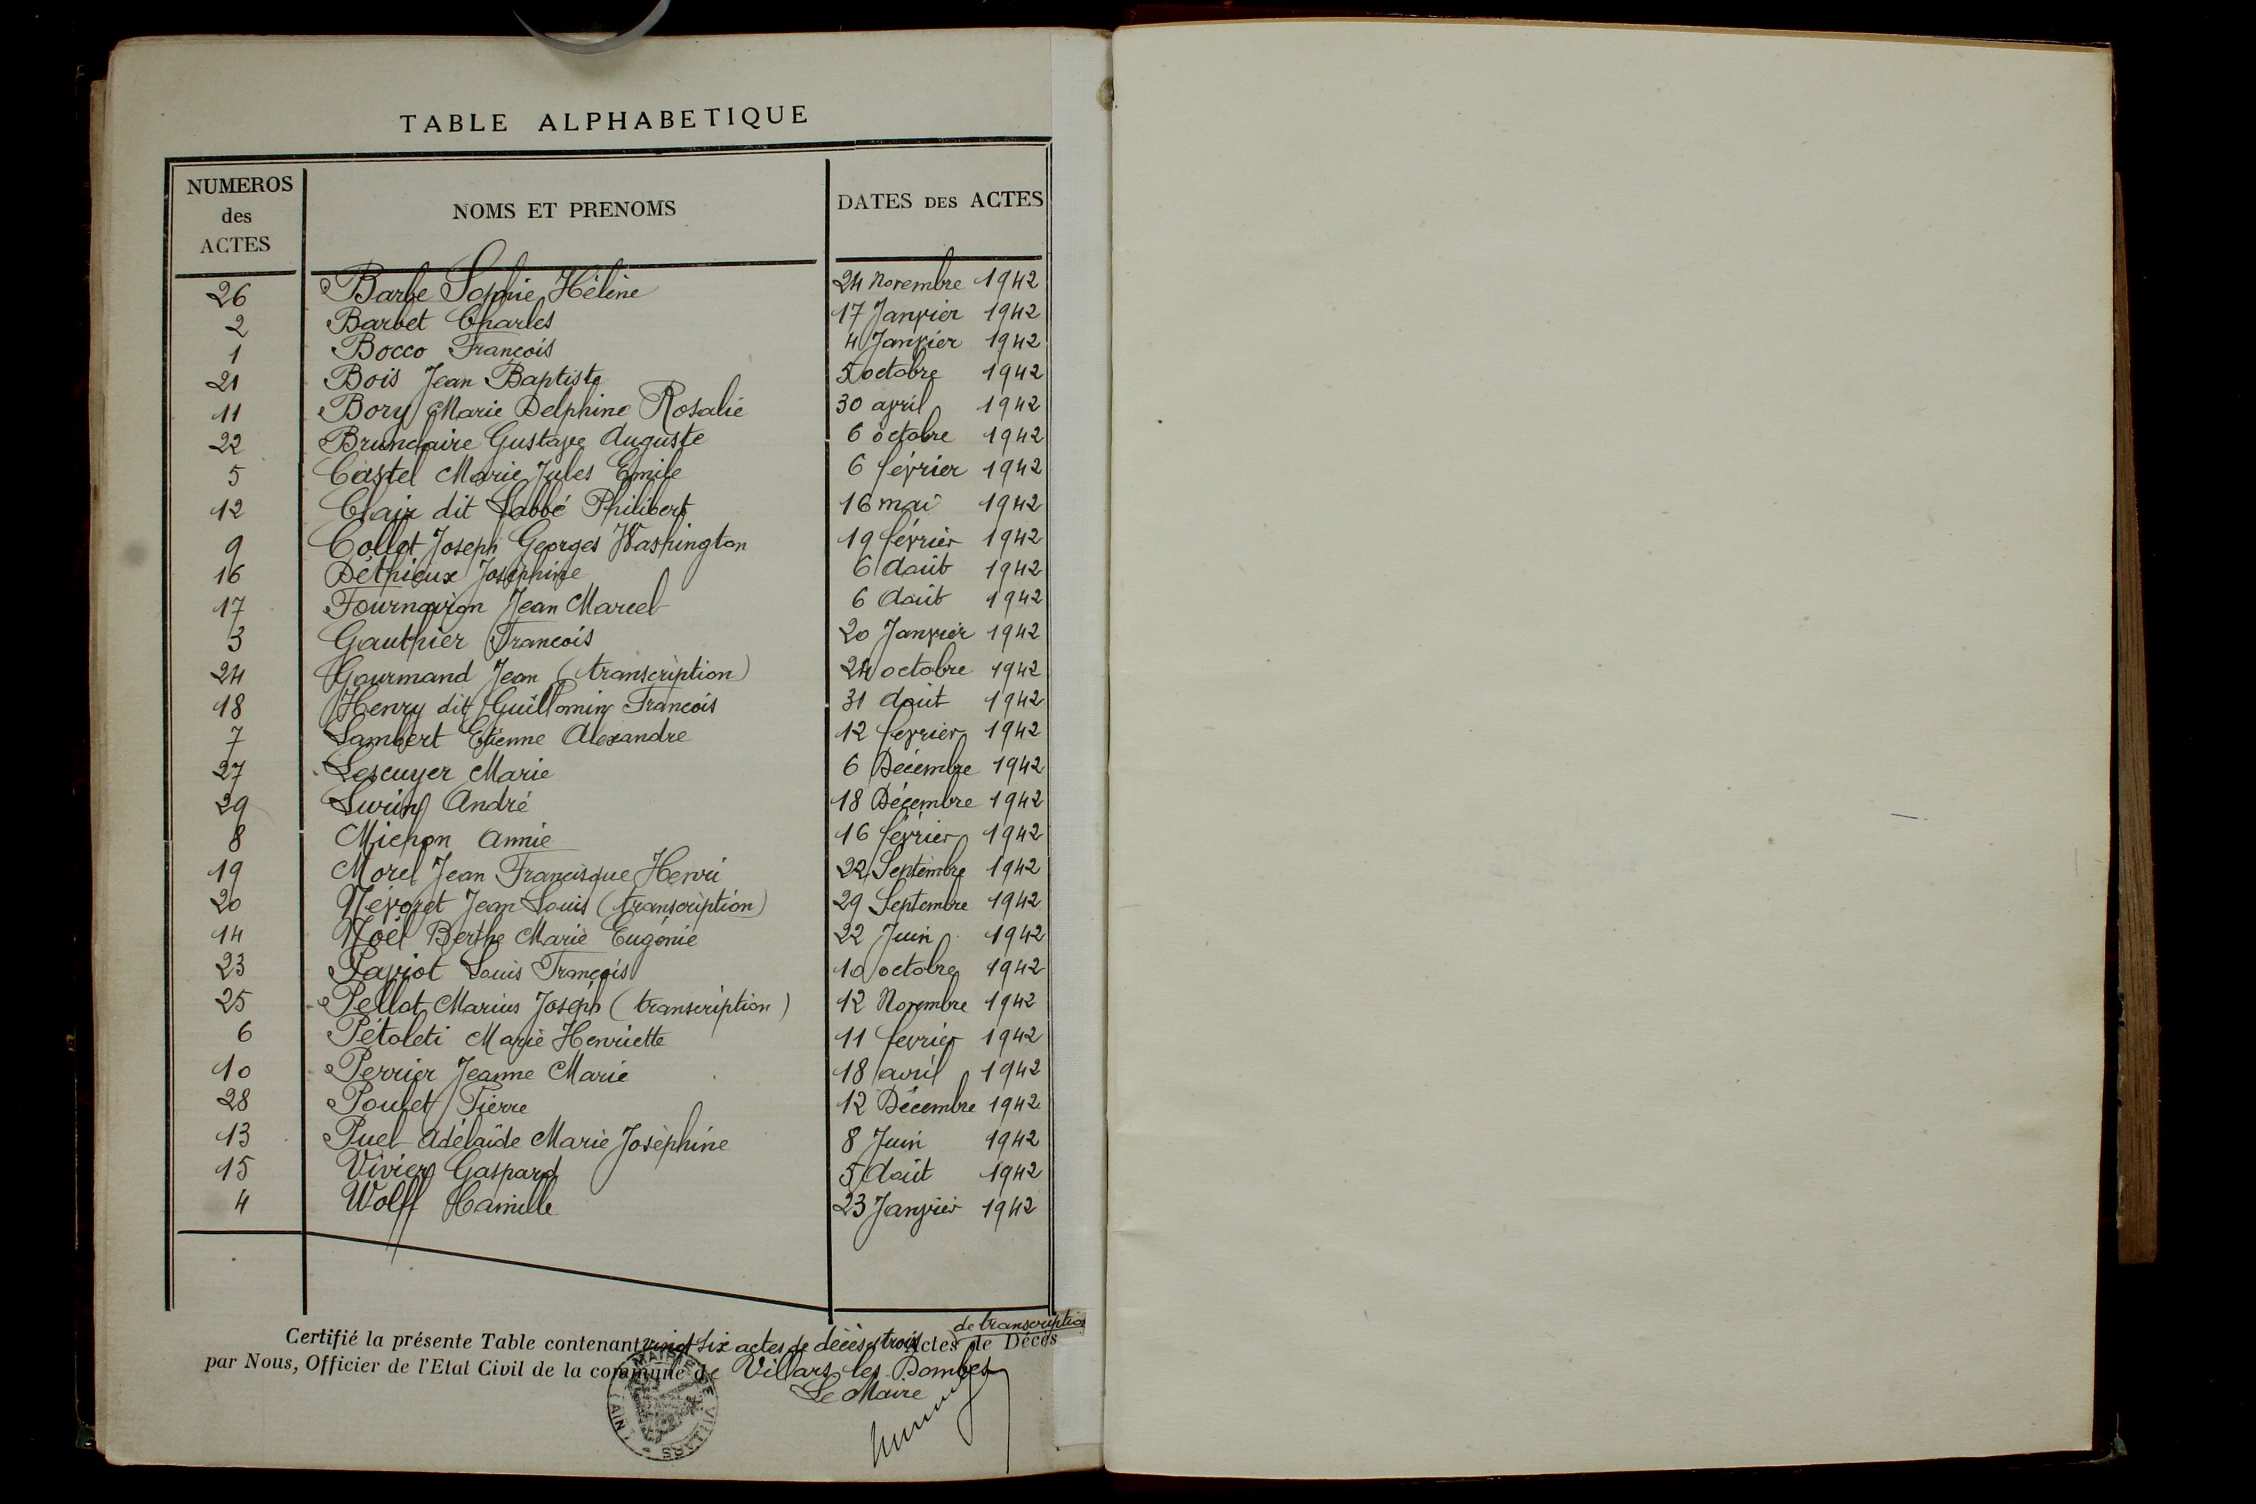 TABLE ALPHABETIQUE
NUMEROS des ACTES
NOMS ET PRENOMS
DATES DES ACTES
26 Barbe Sophie Hélène 24 Novembre 1942
2 Barbet Charles 17 Janvier 1942
1 Bocco François 4 Janvier 1942
21 Bois Jean Baptiste 5 octobre 1942
11 Bory Marie Delphine Rosalie 30 avril 1942
22 Brunclaire Gustave Auguste 6 octobre 1942
5 Castel Marie Jules Emile 6 février 1942
12 Claix dit Labbé Philibert 16 mai 1942
9 Collet Joseph Georges Washington 19 février 1942
16 Déthieux Joséphine 6 Août 1942
17 Fournavion Jean Marcel 6 Août 1942
3 Gauthier François 20 Janvier 1942
24 Gourmand Jean (transcription) 24 octobre 1942
18 Henry dit Guillomin François 31 Août 1942
7 Lambert Etienne Alexandre 12 fevrier 1942
27 Lescuyer Marie 6 Décembre 1942
29 André 18 Décembre 1942
8 Michon Annie 16 février 1942
19 Morel Jean Francisque Henri 22 Septembre 1942
20 Névoret Jean Louis (transcription) 29 Septembre 1942
14 Noël Berthe Marie Eugénie 22 Juin 1942
23 Paviot Louis François 10 octobre 1942
25 Pellot Marius Joseph (transcription) 12 Novembre 1942
6 Pétoleti Marie Henriette 11 fevrier 1942
10 Perrier Jeanne Marie 18 avril 1942
28 Poulet Pierre 12 Décembre 1942
13 Puel Adélaïde Marie Joséphine 8 Juin 1942
15 Vivier Gaspard 5 Août 1942
4 Wolff Camille 23 Janvier 1942
de transcription
Certifié la présente Table contenant vingt six actes de décès et trois Actes de Décès
par Nous, Officier de l'Etat Civil de la commune de Villars les Dombes
Le Maire
MAIRIE DE VILLARS (AIN)